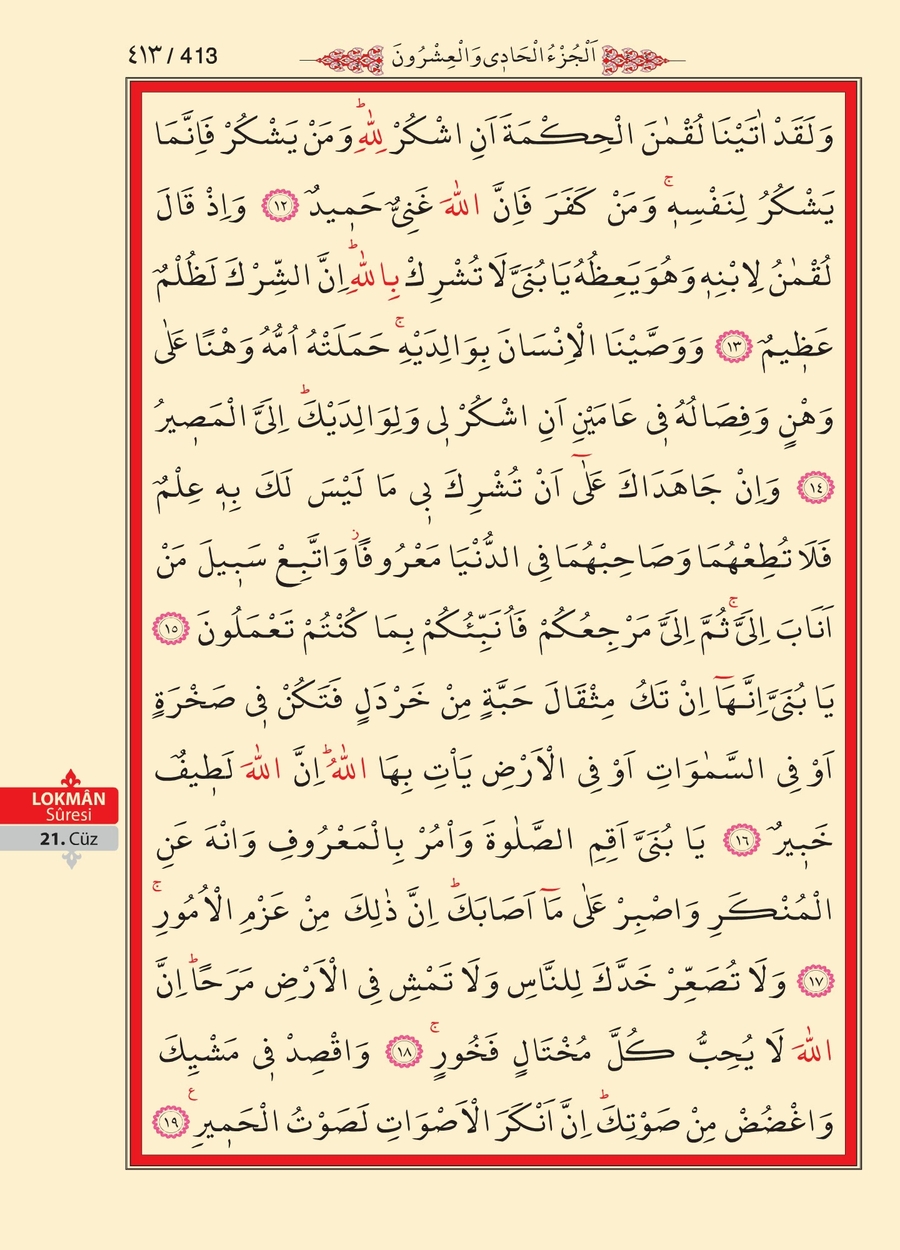 ٤١٣ / 413
اَلْجُزْءُ الْحَادِي وَالْعِشْرُونَ
وَلَقَدْ اٰتَيْنَا لُقْمٰنَ الْحِكْمَةَ اَنِ اشْكُرْ لِلّٰهِؕ وَمَنْ يَشْكُرْ فَاِنَّمَا
يَشْكُرُ لِنَفْسِه۪ۚ وَمَنْ كَفَرَ فَاِنَّ اللّٰهَ غَنِيٌّ حَم۪يدٌ ﴿١٢﴾ وَاِذْ قَالَ
لُقْمٰنُ لِابْنِه۪ وَهُوَ يَعِظُهُ يَا بُنَيَّ لَا تُشْرِكْ بِاللّٰهِؕ اِنَّ الشِّرْكَ لَظُلْمٌ
عَظ۪يمٌ ﴿١٣﴾ وَوَصَّيْنَا الْاِنْسَانَ بِوَالِدَيْهِۚ حَمَلَتْهُ اُمُّهُ وَهْنًا عَلٰى
وَهْنٍ وَفِصَالُهُ ف۪ي عَامَيْنِ اَنِ اشْكُرْ ل۪ي وَلِوَالِدَيْكَؕ اِلَيَّ الْمَص۪يرُ
﴿١٤﴾ وَاِنْ جَاهَدَاكَ عَلٰٓى اَنْ تُشْرِكَ ب۪ي مَا لَيْسَ لَكَ بِه۪ عِلْمٌ
فَلَا تُطِعْهُمَا وَصَاحِبْهُمَا فِي الدُّنْيَا مَعْرُوفًاؗ وَاتَّبِعْ سَب۪يلَ مَنْ
اَنَابَ اِلَيَّۚ ثُمَّ اِلَيَّ مَرْجِعُكُمْ فَاُنَبِّئُكُمْ بِمَا كُنْتُمْ تَعْمَلُونَ ﴿١٥﴾
يَا بُنَيَّ اِنَّهَٓا اِنْ تَكُ مِثْقَالَ حَبَّةٍ مِنْ خَرْدَلٍ فَتَكُنْ ف۪ي صَخْرَةٍ
اَوْ فِي السَّمٰوَاتِ اَوْ فِي الْاَرْضِ يَاْتِ بِهَا اللّٰهُؕ اِنَّ اللّٰهَ لَط۪يفٌ
خَب۪يرٌ ﴿١٦﴾ يَا بُنَيَّ اَقِمِ الصَّلٰوةَ وَاْمُرْ بِالْمَعْرُوفِ وَانْهَ عَنِ
الْمُنْكَرِ وَاصْبِرْ عَلٰى مَٓا اَصَابَكَؕ اِنَّ ذٰلِكَ مِنْ عَزْمِ الْاُمُورِۚ
﴿١٧﴾ وَلَا تُصَعِّرْ خَدَّكَ لِلنَّاسِ وَلَا تَمْشِ فِي الْاَرْضِ مَرَحًاؕ اِنَّ
اللّٰهَ لَا يُحِبُّ كُلَّ مُخْتَالٍ فَخُورٍۚ ﴿١٨﴾ وَاقْصِدْ ف۪ي مَشْيِكَ
وَاغْضُضْ مِنْ صَوْتِكَؕ اِنَّ اَنْكَرَ الْاَصْوَاتِ لَصَوْتُ الْحَم۪يرِ ع ﴿١٩﴾
LOKMÂN
Sûresi
21. Cüz